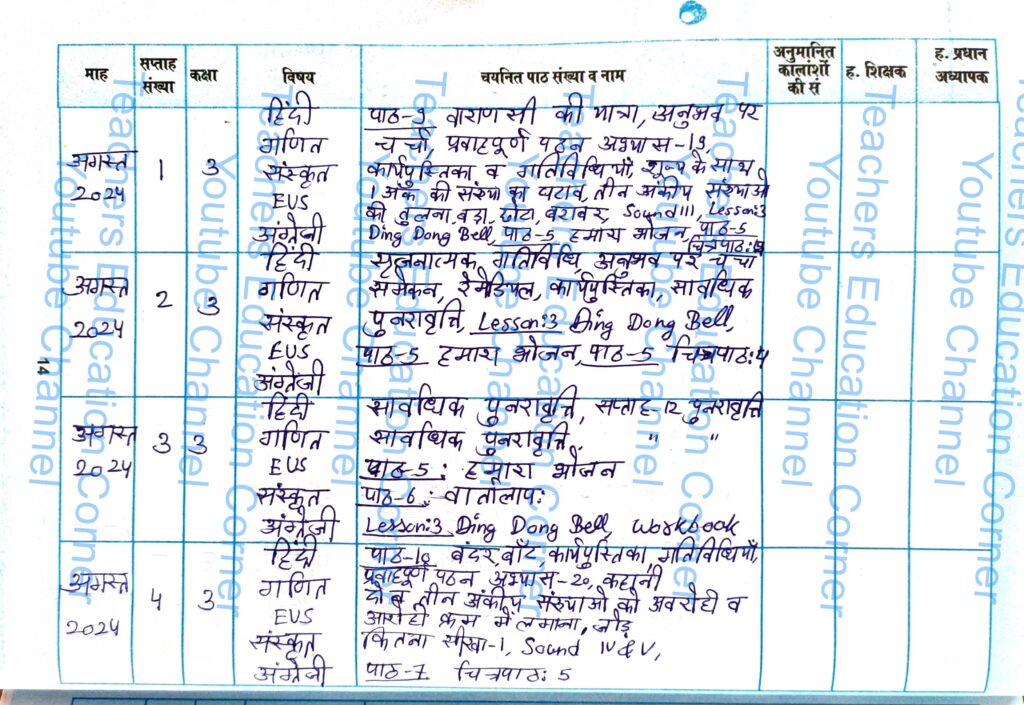 माह सप्ताह संख्या कक्षा विषय चयनित पाठ संख्या व नाम अनुमानित कालांशों की सं ह. शिक्षक ह. प्रधान अध्यापक
अगस्त 2024 1 3
हिंदी पाठ-9 वाराणसी की यात्रा, अनुभव पर
गणित चर्चा, प्रवाहपूर्ण पठन अभ्यास-19,
संस्कृत कार्यपुस्तिका व गतिविधियाँ, शून्य के साथ
EVS 1 अंक की संख्या का घटाव, तीन अंकीय संख्याओं
की तुलना, बड़ा, छोटा, बराबर, Sound III, Lesson:3
अंग्रेजी Ding Dong Bell, पाठ-5 हमारा भोजन, पाठ-5
चित्रपाठ:
अगस्त 2024 2 3
हिंदी सृजनात्मक गतिविधि, अनुभव पर चर्चा
गणित समेकन, रेमेडियल, कार्यपुस्तिका, सावधिक
संस्कृत पुनरावृत्ति, Lesson:3 Ding Dong Bell,
EVS पाठ-5 हमारा भोजन, पाठ-5 चित्रपाठ:4
अंग्रेजी
अगस्त 2024 3 3
हिंदी सावधिक पुनरावृत्ति, सप्ताह-12 पुनरावृत्ति
गणित सावधिक पुनरावृत्ति, " "
EVS पाठ-5: हमारा भोजन
संस्कृत पाठ-6: वार्तालाप:
अंग्रेजी Lesson:3 Ding Dong Bell, Workbook
अगस्त 2024 4 3
हिंदी पाठ-10 बंदर बाँट, कार्यपुस्तिका, गतिविधियाँ,
प्रवाहपूर्ण पठन अभ्यास-20, कहानी
गणित दो व तीन अंकीय संख्याओं को अवरोही व
EVS आरोही क्रम में लगाना, जोड़
संस्कृत कितना सीखा-1, Sound IV & V,
अंग्रेजी पाठ-7 चित्रपाठ: 5
14
Teachers Education Corner
Youtube Channel
Teachers Education Corner
Youtube Channel
Teachers Education Corner
Youtube Channel
Teachers Education Corner
Youtube Channel